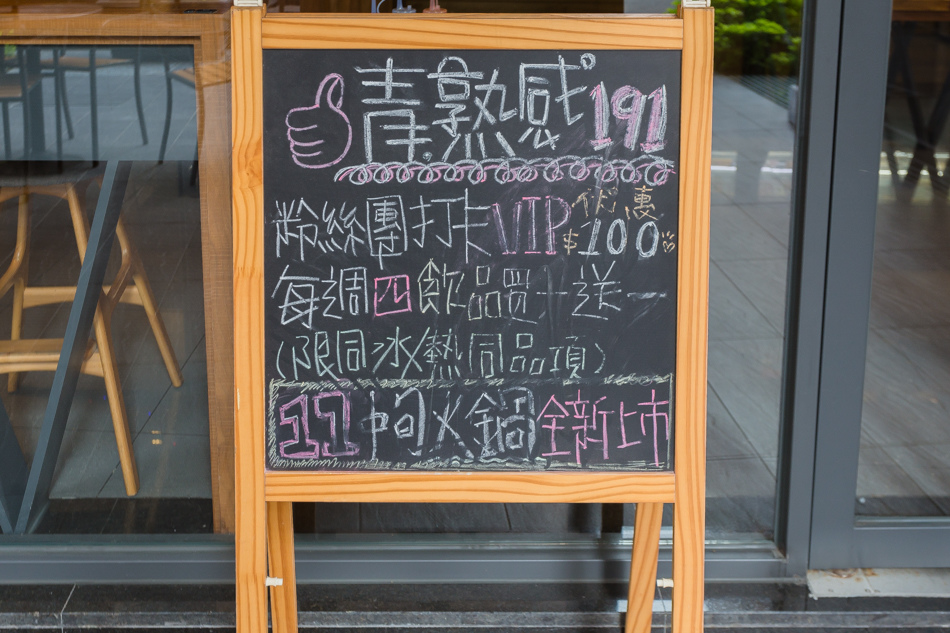 青熟感 191
粉絲團打卡VIP優惠$100
每週四飲品買一送一
(限同冰熱同品項)
11.火鍋全新上市